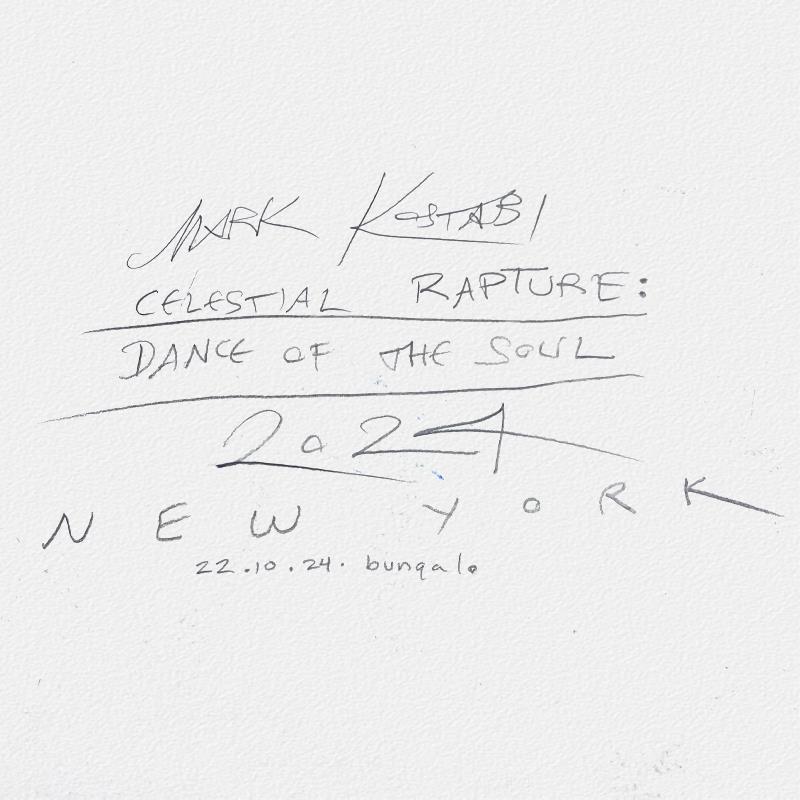 MARK KOSTABI
CELESTIAL RAPTURE:
DANCE OF THE SOUL
2024
NEW YORK
22.10.24. bungalo